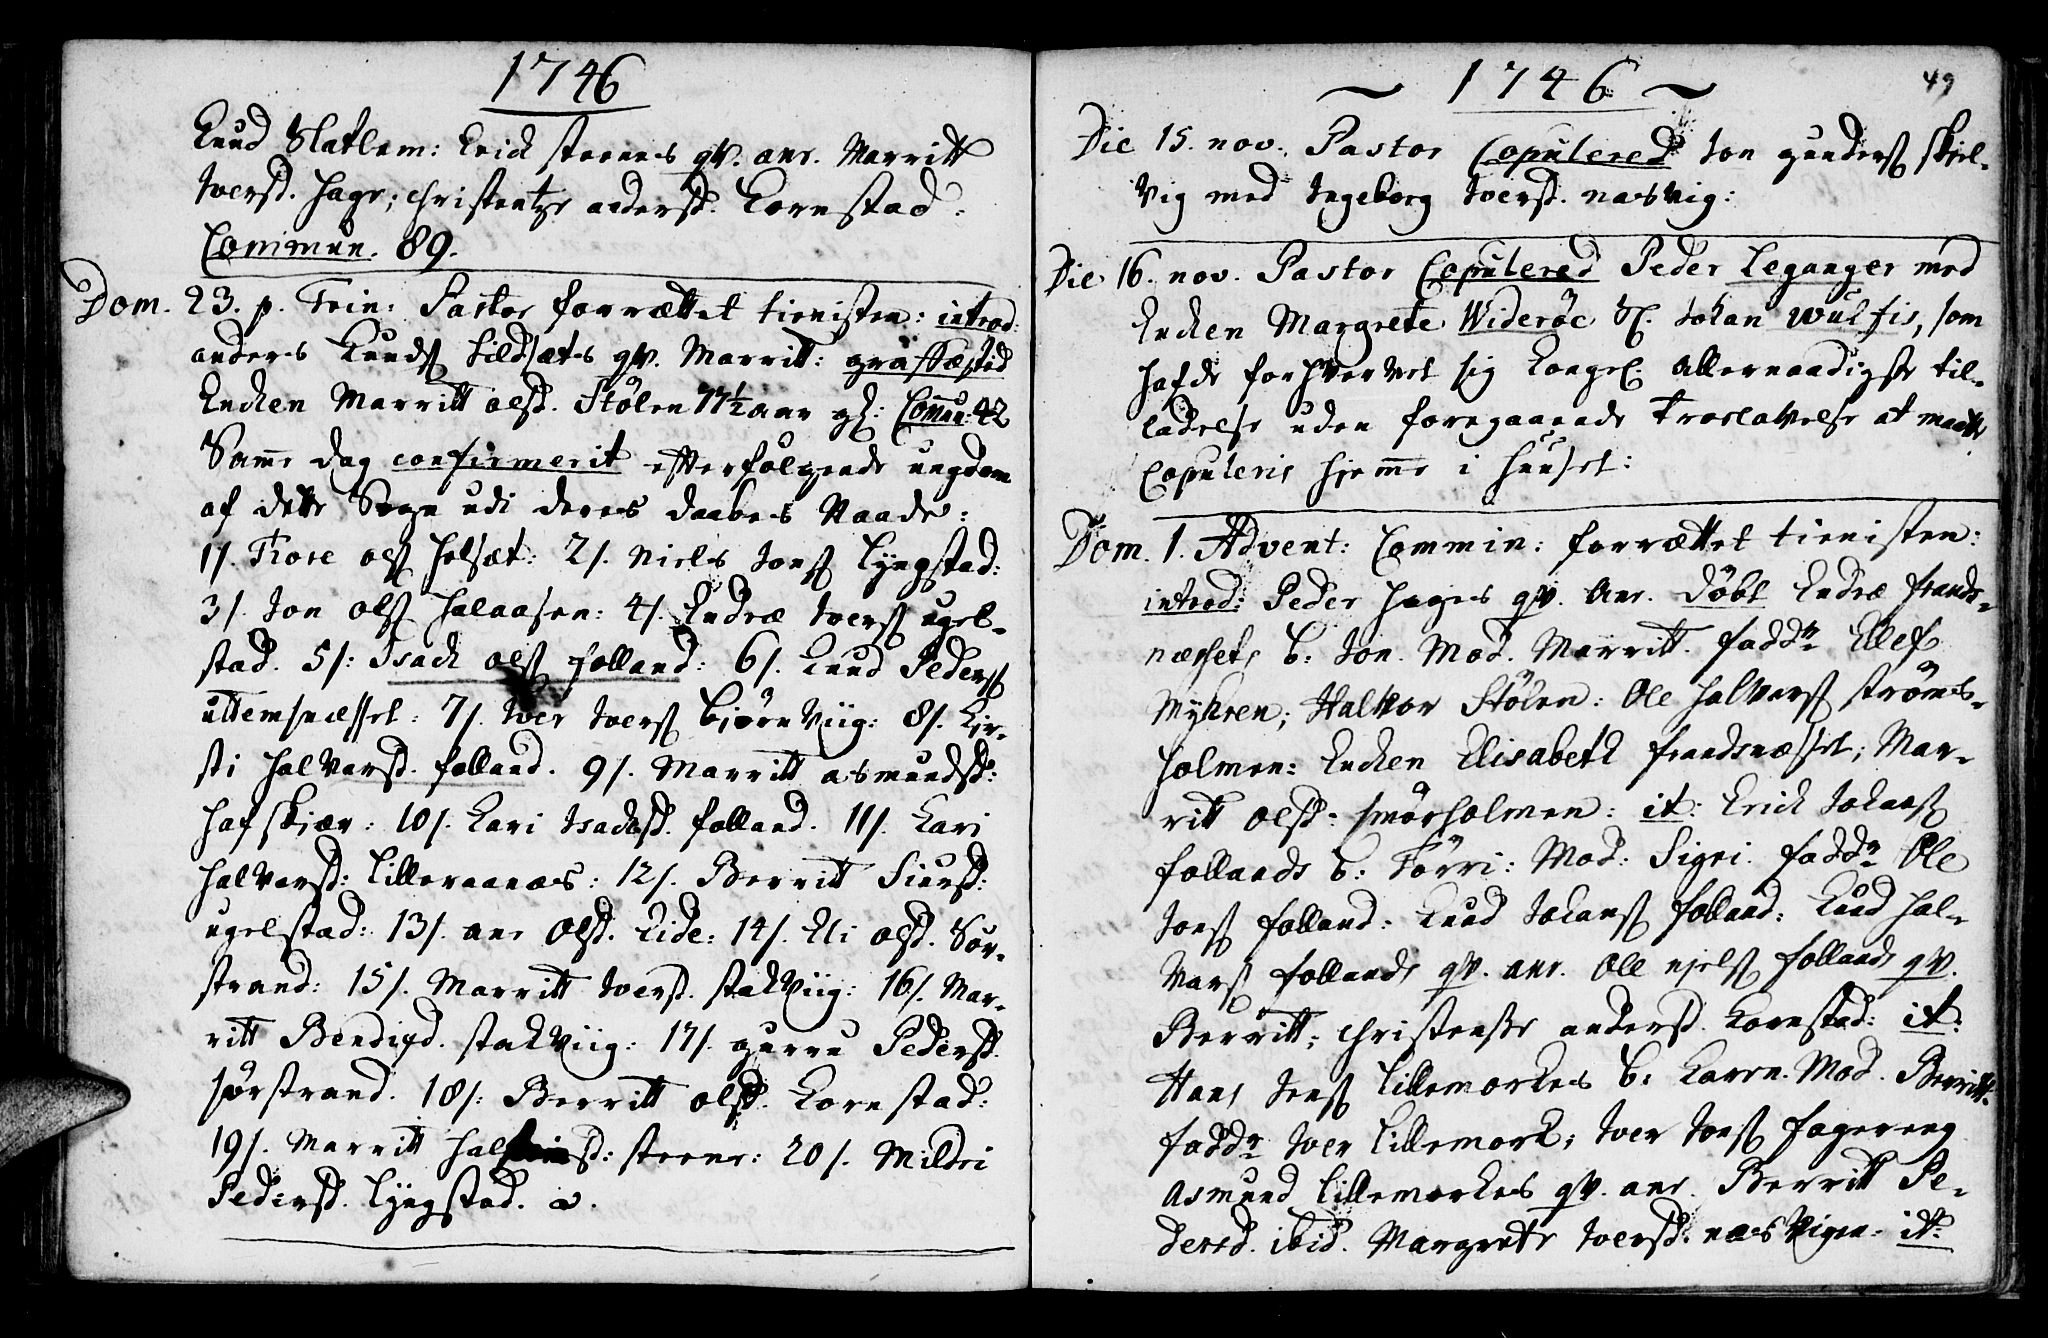 1746
Knud Slatlem: Erich steenes qv. ane. Marritt
Iversd. Hage; christentze andersd. Kornstad.
Commun. 89.
Dom. 23. p. Trin: Pastor forrættet tienisten: introd:
anders Knuds Lildsæts qv. Marritt: graffæsted
Enchen Marritt olsd. Stølen 77½ aar gl: Comun: 42
Same dag confirmerit efterfølgende ungdom
af dette Sogn udi deres daabes Naade:
1/. Tore ols Holsæt: 2/. Niels Jons Lÿngstad:
3/. Jon ols Halaasen: 4/. Endre Ivers ugel-
stad. 5/: Isach ols folland: 6/. Knud Peders
uttemsnæsset: 7/. Iver Ivers Biørnviig: 8/. Kir-
sti Halvarsd. folland. 9/. Marritt asmundsd:
Hafskiær: 10/. Kari Isachsd. folland. 11/. Kari
Halvarsd: Lilleraanæs: 12/. Berritt Siursd:
ugelstad: 13/. ane Olsd. Eide: 14/. Eli olsd. Sør-
strand: 15/. Marritt Iversd. stakviig: 16/. Mar-
ritt Bendixd. stakviig: 17/. gurru Pedersd.
sørstrand. 18/: Berritt olsd. Kornstad:
19/. Marritt steene: 20/. Mildri
Pedersd. Lÿngstad.
~ 1746 ~ 49
Die 15. nov. Pastor Copulered Jon gunders skiel-
vig med Ingeborg Iversd. nasvig:
Die 16. nov. Pastor Copulered Peder Leganger med
Enchen Margrete Widerøe Sl. Johan Wulfis, som
hafde forhvervet sig Kongel. allernaadigste til-
ladelse uden foregaaende Troelovelse at maatte
Copuleris hieme i Huuset:
Dom. 1. Advent: Commin: forrættet tienisten:
introd: Peder Hages qv. ane. døbt Endre frands-
næssets b: Jon. Mod. Marritt. faddr Ellef
Myhren; Halvor Stølen: Ole Halvars strøms-
holmen: Enchen Elisabeth frandsnæsset; Mar-
ritt Olsd: smørholmen: it: Erich Johans
follands b: Tørri: Mod: Sigri. faddr Ole
Jons folland: Knud Johans folland: Knud Hal-
vars follands qv. ane. Ole njels follands qv.
Berritt; christense andersd. Kornstad: it:
Hans Jens Lillemorkes b: Karen. Mod. Berritt:
faddr Iver Lillemork; Iver Jons fagereng
Asmund Lillemorkes qv. ane. Berritt Pe-
dersd. ibid. Margrete Iversd: næsvigen. it: